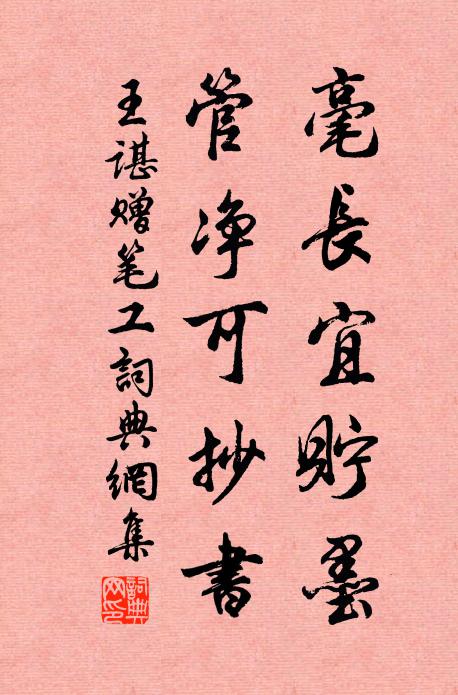 毫長宜貯墨
管净可抄書
王諶赠笔工詞典網集
詞典
网印